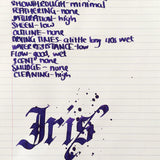 SHOWTHROUGH-minimal
FEATHERING-none
SATURATION-high
SHEEN-low
OUTLINE-none
DRYING TIMES-a little long when wet
WATER RESISTANCE-low
FLOW-good, wet
SCENT-none
SMUDGE-none
CLEANING-high
Iris